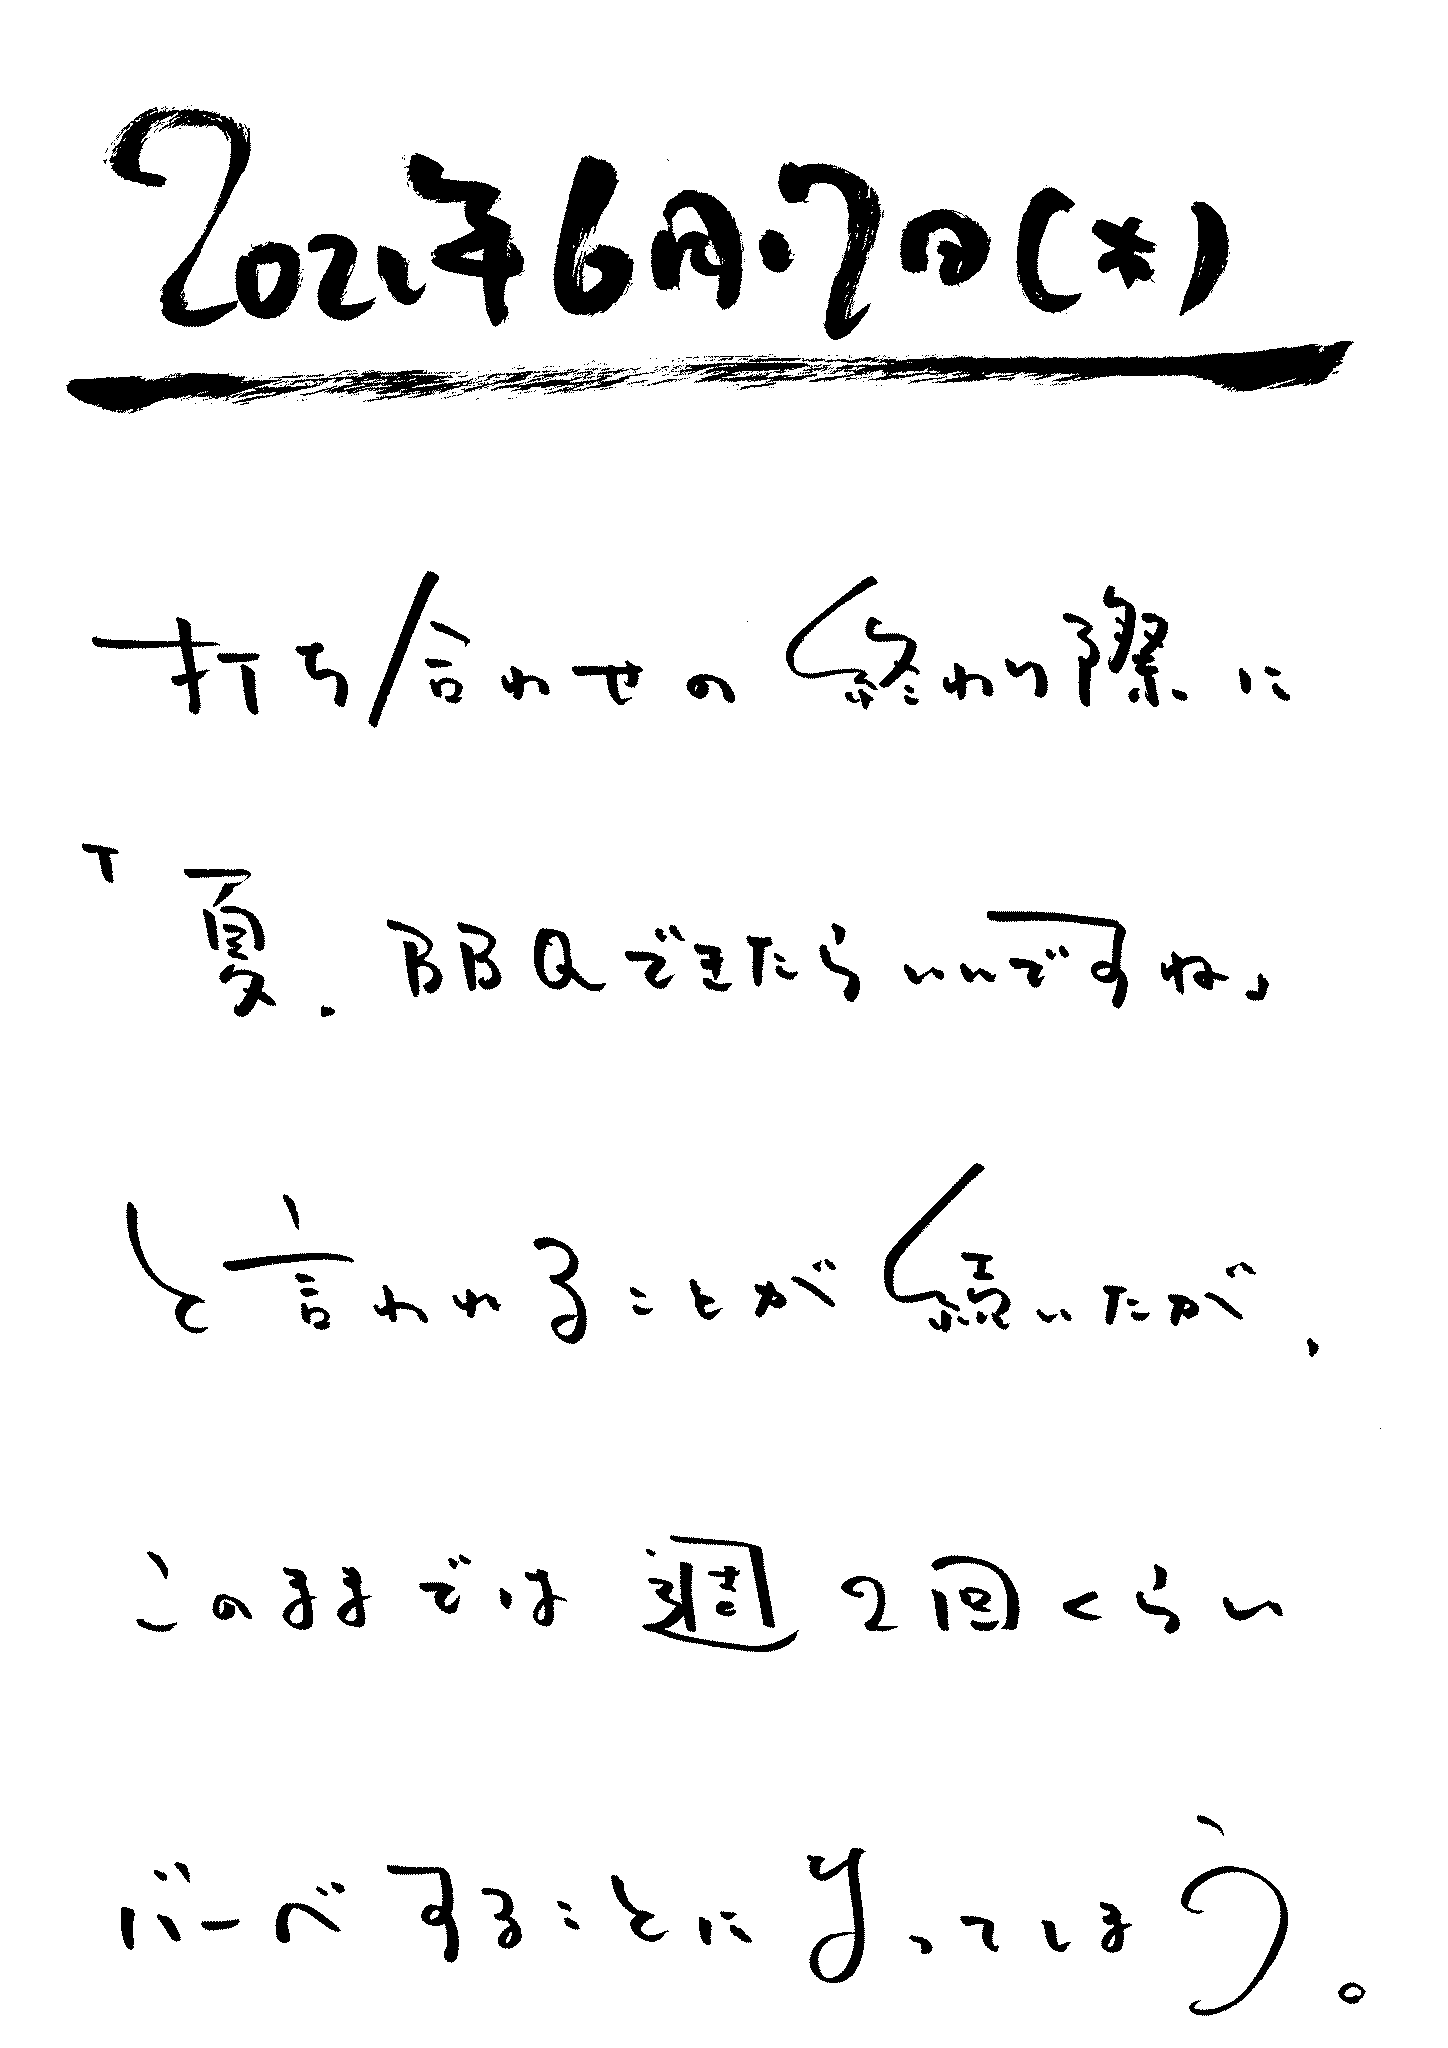 2021年6月17日(木)
打ち合わせの終わり際に
「夏、BBQできたらいいですね」
と言われることが続いたが、
このままでは週2回くらい
バーベすることになってしまう。